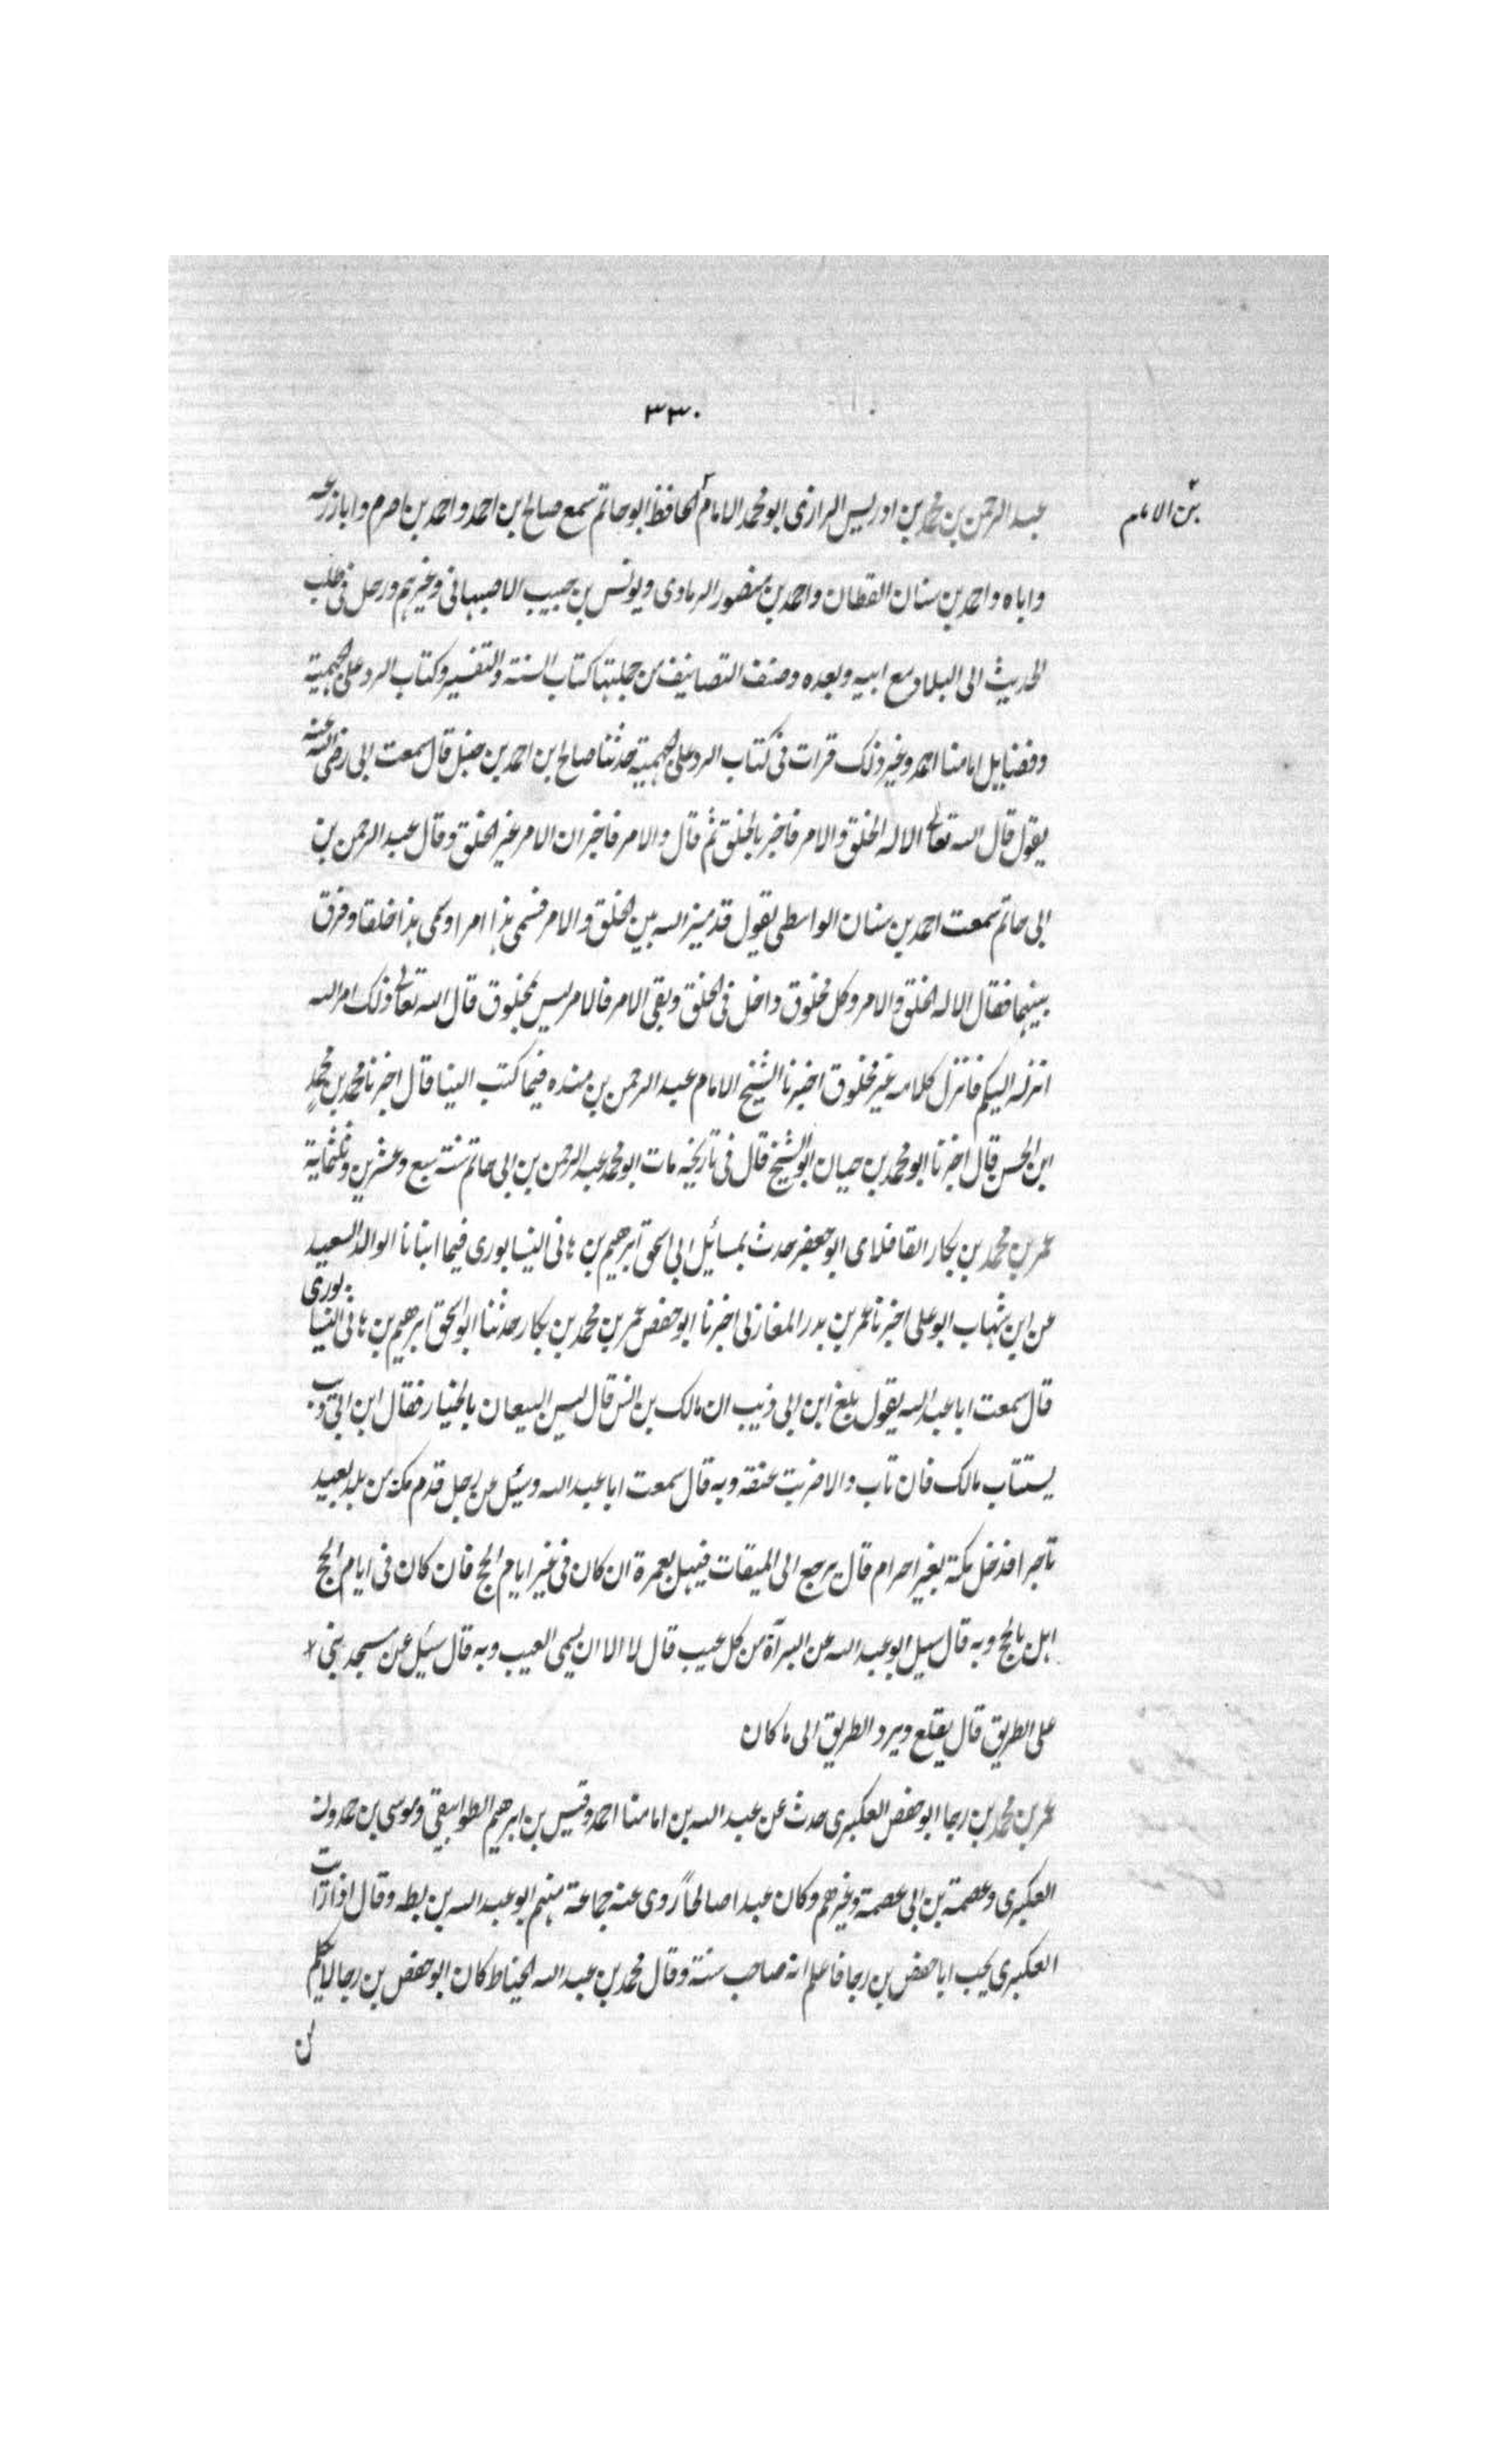 ٣٣٠
بن الامام
عبد الرحمن بن محمد بن ادريس الرازى ابو محمد الامام الحافظ ابو حاتم سمع صالح ابن احمد و احمد بن اصرم و ابا زرعه
و اباه و احمد بن سنان القطان و احمد بن منصور الرمادى و يونس بن حبيب الاصبهانى وغيرهم ورحل فى طلب
الحديث الى البلاد مع ابيه وبعده وصنف التصانيف من جملتها كتاب السنة والتفسير وكتاب الرد على الجهمية
وفضايل امامنا احمد وغير ذلك قرات فى كتاب الرد على الجهمية حدثنا صالح ابن احمد بن حنبل قال سمعت ابى رضى الله عنه
يقول قال الله تعالى الا له الخلق والامر فاخبر بالخلق ثم قال والامر فاخبر ان الامر غير الخلق وقال عبد الرحمن بن
ابى حاتم سمعت احمد بن سنان الواسطى يقول قد ميز الله بين الخلق والامر فسمى هذا امرا وسمى هذا خلقا وفرق
بينهما فقال الا له الخلق والامر وكل مخلوق داخل فى الخلق وبقى الامر فالامر ليس بمخلوق قال الله تعالى ذلك امر الله
انزله اليكم فانزل كلامه غير مخلوق اخبرنا الشيخ الامام عبد الرحمن بن منده فيما كتب الينا قال اخبرنا محمد بن محمد
ابن الحسن قال اخبرنا ابو محمد بن حيان ابو الشيخ قال فى تاريخه مات ابو محمد عبد الرحمن بن ابى حاتم سنة سبع وعشرين وثلثماية
عمر بن محمد بن بكار القافلاى ابو جعفر حدث بمسائل ابى اسحق ابرهيم بن هانى النيسابورى فيما انبانا الوالد السعيد
عن ابن شهاب ابو على اخبرنا عمر بن بدر المغازلى اخبرنا ابو حفص عمر بن محمد بن بكار حدثنا ابو اسحق ابرهيم بن هانى النيسابورى
قال سمعت ابا عبد الله يقول بلغ ابن ابى ذيب ان مالك بن انس قال ليس البيعان بالخيار فقال ابن ابى ذيب
يستتاب مالك فان تاب والا ضربت عنقه وبه قال سمعت ابا عبد الله وسئل عن رجل قدم مكة من بلد بعيد
تاجرا فدخل مكة بغير احرام قال يرجع الى الميقات فيهل بعمرة ان كان فى غير ايام الحج فان كان فى ايام الحج
اهل بالحج وبه قال سيل ابو عبد الله عن البرآة من كل عيب قال لا الا ان يسمى العيب وبه قال سئل عن مسجد بنى
على الطريق قال يقلع ويرد الطريق الى ما كان
عمر بن محمد بن رجا ابو حفص العكبرى حدث عن عبد الله بن امامنا احمد وقيس بن ابرهيم الطوابيقى وموسى بن حمدون
العكبرى وعصمة بن ابى عصمة وغيرهم وكان عبدا صالحاً روى عنه جماعة منهم ابو عبد الله بن بطه وقال اذا رايت
العكبرى يحب ابا حفص بن رجا فاعلم انه صاحب سنة وقال محمد بن عبد الله الخياط كان ابو حفص بن رجا لا يكلم
من